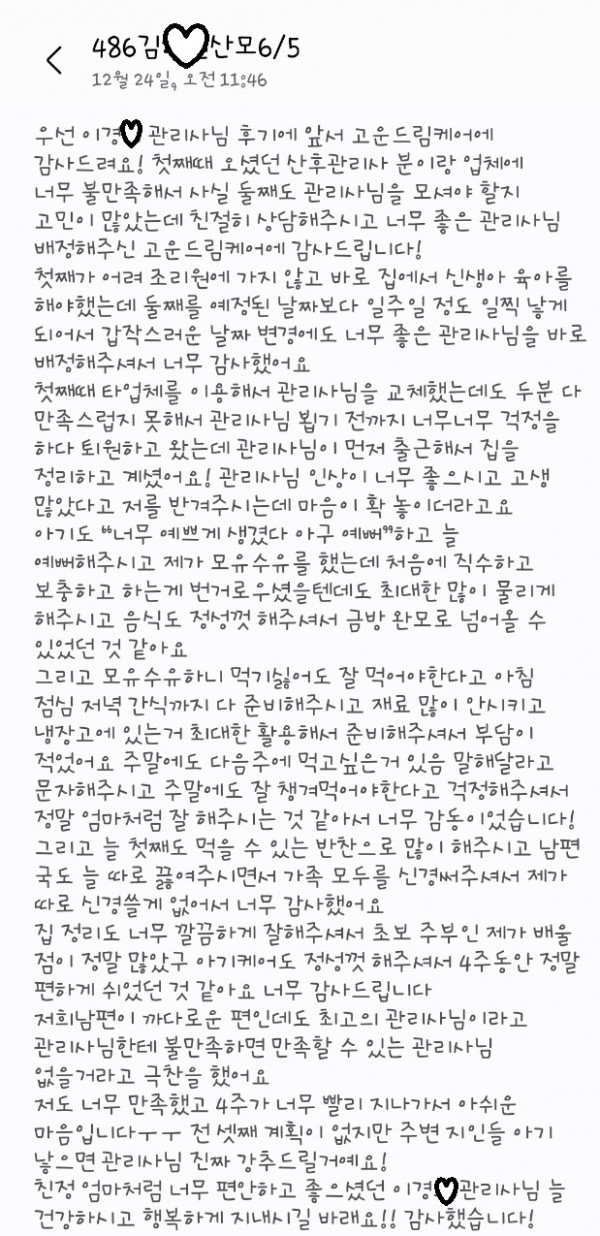 486김 산모6/5
12월 24일, 오전 11:46
우선 이경 관리사님 후기에 앞서 고운드림케어에
감사드려요! 첫째때 오셨던 산후관리사 분이랑 업체에
너무 불만족해서 사실 둘째도 관리사님을 모셔야 할지
고민이 많았는데 친절히 상담해주시고 너무 좋은 관리사님
배정해주신 고운드림케어에 감사드립니다!
첫째가 어려 조리원에 가지 않고 바로 집에서 신생아 육아를
해야했는데 둘째를 예정된 날짜보다 일주일 정도 일찍 낳게
되어서 갑작스러운 날짜 변경에도 너무 좋은 관리사님을 바로
배정해주셔서 너무 감사했어요
첫째때 타업체를 이용해서 관리사님을 교체했는데도 두분 다
만족스럽지 못해서 관리사님 뵙기 전까지 너무너무 걱정을
하다 퇴원하고 왔는데 관리사님이 먼저 출근해서 집을
정리하고 계셨어요! 관리사님 인상이 너무 좋으시고 고생
많았다고 저를 반겨주시는데 마음이 확 놓이더라고요
아기도 “너무 예쁘게 생겼다 아구 예뻐”하고 늘
예뻐해주시고 제가 모유수유를 했는데 처음에 직수하고
보충하고 하는게 번거로우셨을텐데도 최대한 많이 물리게
해주시고 음식도 정성껏 해주셔서 금방 완모로 넘어올 수
있었던 것 같아요
그리고 모유수유하니 먹기싫어도 잘 먹어야한다고 아침
점심 저녁 간식까지 다 준비해주시고 재료 많이 안시키고
냉장고에 있는거 최대한 활용해서 준비해주셔서 부담이
적었어요 주말에도 다음주에 먹고싶은거 있음 말해달라고
문자해주시고 주말에도 잘 챙겨먹어야한다고 걱정해주셔서
정말 엄마처럼 잘 해주시는 것 같아서 너무 감동이었습니다!
그리고 늘 첫째도 먹을 수 있는 반찬으로 많이 해주시고 남편
국도 늘 따로 끓여주시면서 가족 모두를 신경써주셔서 제가
따로 신경쓸게 없어서 너무 감사했어요
집 정리도 너무 깔끔하게 잘해주셔서 초보 주부인 제가 배울
점이 정말 많았구 아기케어도 정성껏 해주셔서 4주동안 정말
편하게 쉬었던 것 같아요 너무 감사드립니다
저희남편이 까다로운 편인데도 최고의 관리사님이라고
관리사님한테 불만족하면 만족할 수 있는 관리사님
없을거라고 극찬을 했어요
저도 너무 만족했고 4주가 너무 빨리 지나가서 아쉬운
마음입니다ㅜㅜ 전 셋째 계획이 없지만 주변 지인들 아기
낳으면 관리사님 진짜 강추드릴거예요!
친정 엄마처럼 너무 편안하고 좋으셨던 이경 관리사님 늘
건강하시고 행복하게 지내시길 바래요!! 감사했습니다!